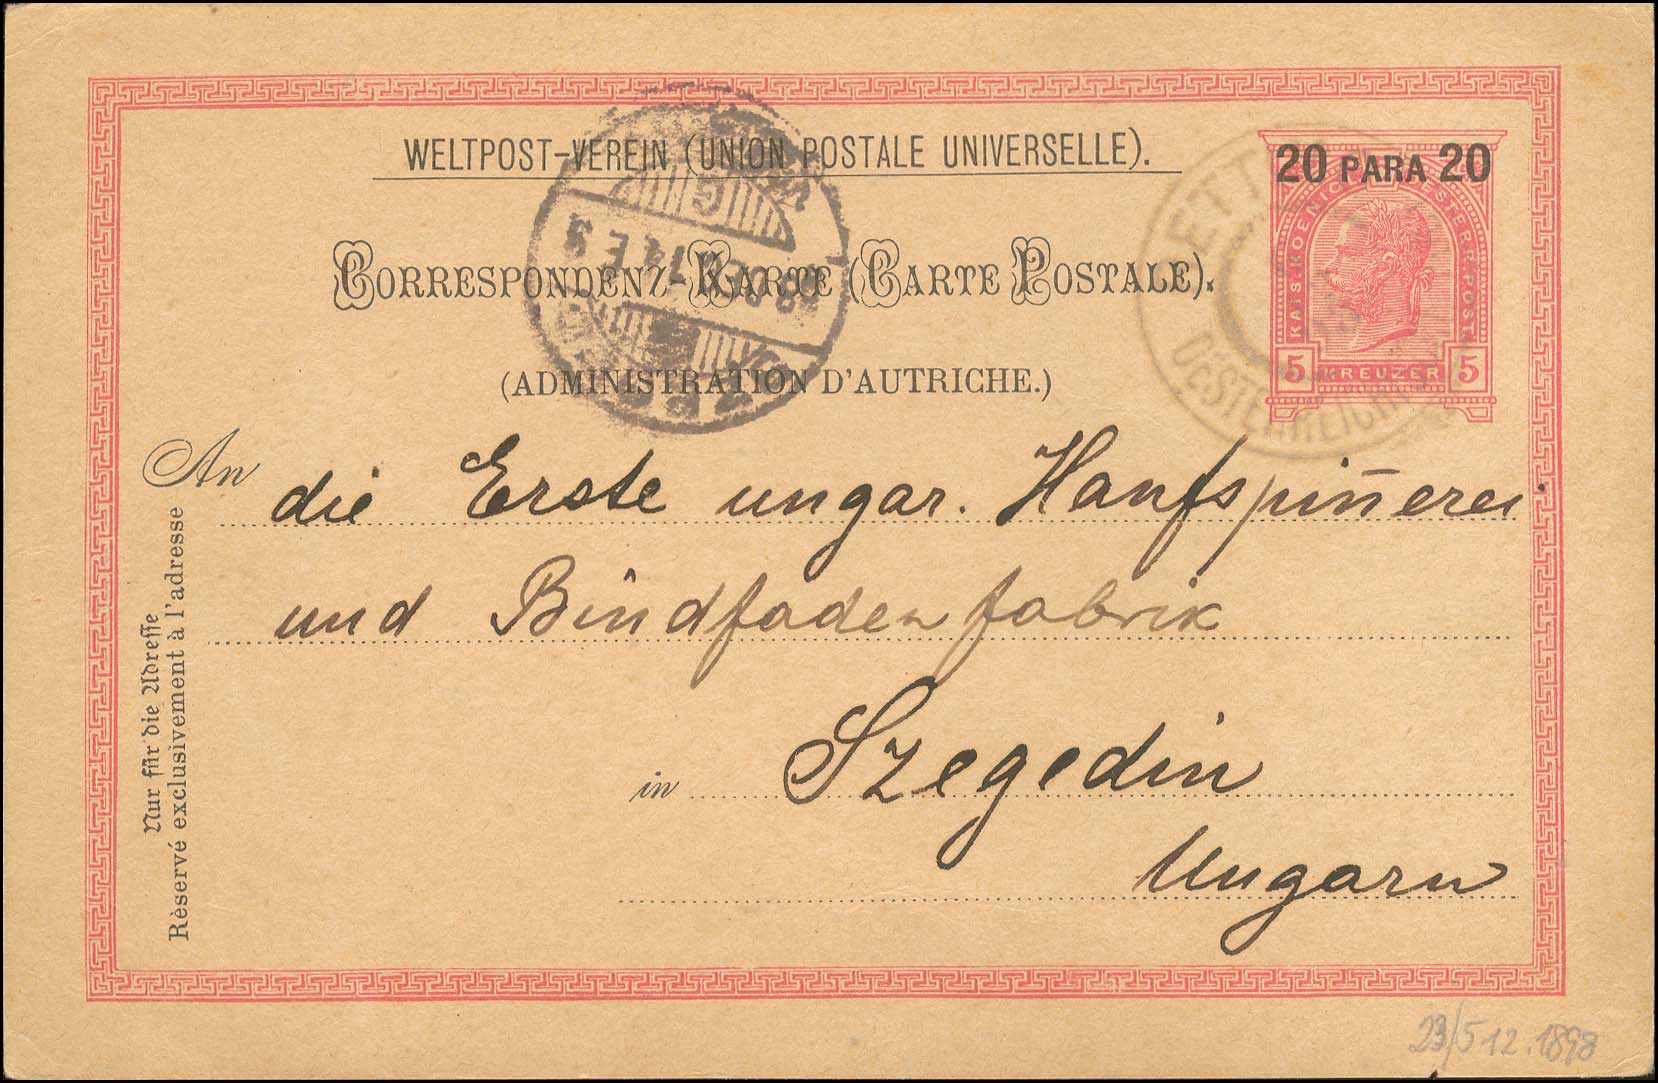 WELTPOST-VEREIN (UNION POSTALE UNIVERSELLE).
20 PARA 20
KAIS. KOENIGL. OESTERR. POST.
5 KREUZER 5
CORRESPONDENZ-KARTE (CARTE POSTALE).
(ADMINISTRATION D'AUTRICHE.)
OESTERREICH
An die Erste ungar. Hanfspin̄erei
und Bindfadenfabrik
in Szegedin
Ungarn
Nur für die Adresse
Rèservé exclusivement à l'adresse
23/5 12. 1898